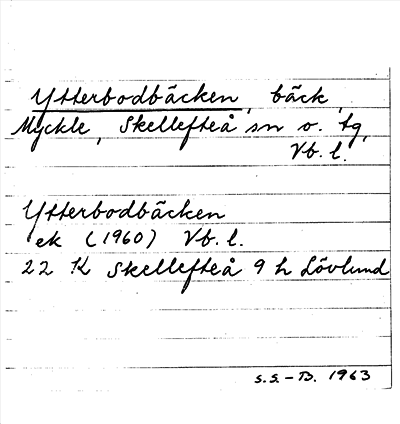 Ytterbodbäcken, bäck,
Myckle, Skellefteå sn o. tg,
Vb. l.
Ytterbodbäcken
ek (1960) Vb. l.
22 K Skellefteå 9 h Lövlund
S.S.-B. 1963